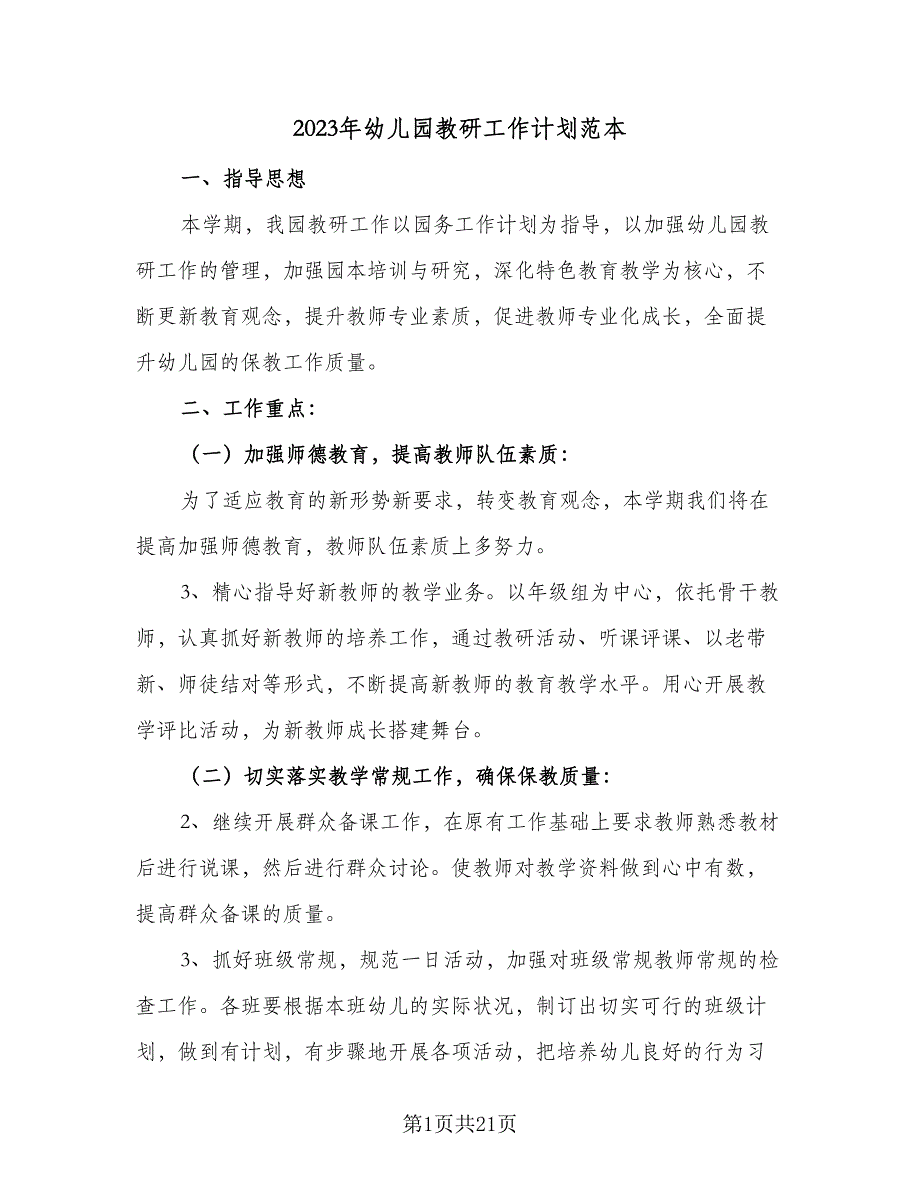 2023年幼儿园教研工作计划范本
一、指导思想
本学期，我园教研工作以园务工作计划为指导，以加强幼儿园教
研工作的管理，加强园本培训与研究，深化特色教育教学为核心，不
断更新教育观念，提升教师专业素质，促进教师专业化成长，全面提
升幼儿园的保教工作质量。
二、工作重点：
（一）加强师德教育，提高教师队伍素质：
为了适应教育的新形势新要求，转变教育观念，本学期我们将在
提高加强师德教育，教师队伍素质上多努力。
3、精心指导好新教师的教学业务。以年级组为中心，依托骨干教
师，认真抓好新教师的培养工作，通过教研活动、听课评课、以老带
新、师徒结对等形式，不断提高新教师的教育教学水平。用心开展教
学评比活动，为新教师成长搭建舞台。
（二）切实落实教学常规工作，确保保教质量：
2、继续开展群众备课工作，在原有工作基础上要求教师熟悉教材
后进行说课，然后进行群众讨论。使教师对教学资料做到心中有数，
提高群众备课的质量。
3、抓好班级常规，规范一日活动，加强对班级常规教师常规的检
查工作。各班要根据本班幼儿的实际状况，制订出切实可行的班级计
划，做到有计划，有步骤地开展各项活动，把培养幼儿良好的行为习
第1页共21页